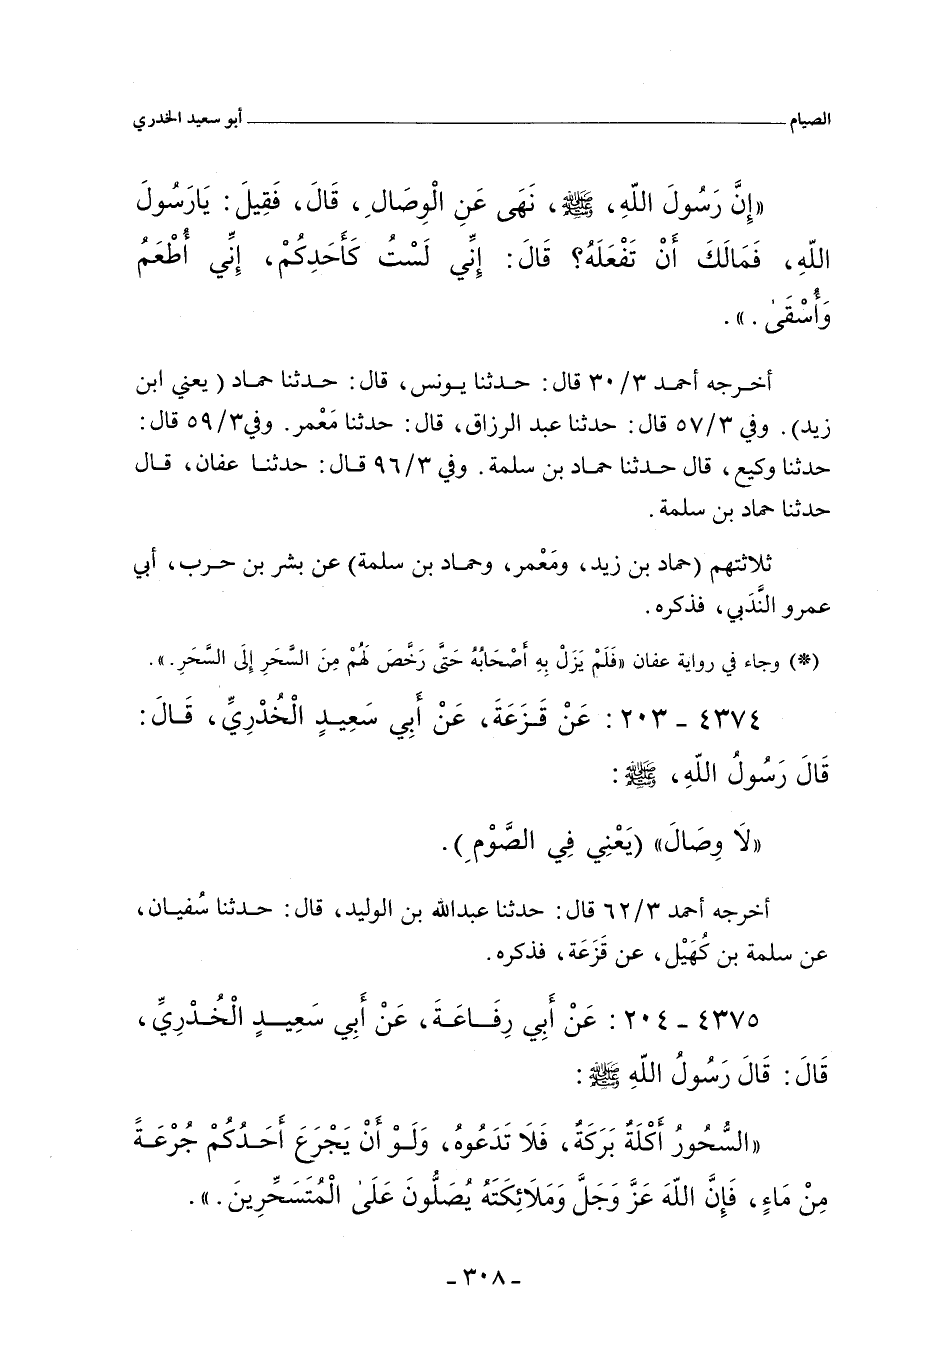 الصيام ــــــــــــ أبو سعيد الخدري
«إِنَّ رَسُولَ اللّهِ، ﷺ، نَهَى عَنِ الْوِصَالِ، قَالَ، فَقِيلَ: يَارَسُولَ
اللّهِ، فَمَالَكَ أَنْ تَفْعَلَهُ؟ قَالَ: إِنِّي لَسْتُ كَأَحَدِكُمْ، إِنِّي أُطْعَمُ
وَأُسْقَىٰ.».
أخرجه أحمد ٣٠/٣ قال: حدثنا يونس، قال: حدثنا حماد (يعني ابن
زيد). وفي ٥٧/٣ قال: حدثنا عبد الرزاق، قال: حدثنا مَعْمر. وفي ٥٩/٣ قال:
حدثنا وكيع، قال حدثنا حماد بن سلمة. وفي ٩٦/٣ قال: حدثنا عفان، قال
حدثنا حماد بن سلمة.
ثلاثتهم (حماد بن زيد، ومَعْمر، وحماد بن سلمة) عن بشر بن حرب، أبي
عمرو النَّدَبي، فذكره.
(*) وجاء في رواية عفان «فَلَمْ يَزَلْ بِهِ أَصْحَابُهُ حَتَّى رَخَّصَ لَهُمْ مِنَ السَّحَرِ إِلَى السَّحَرِ.».
٤٣٧٤ - ٢٠٣: عَنْ قَزَعَةَ، عَنْ أَبِي سَعِيدٍ الْخُدْرِيِّ، قَالَ:
قَالَ رَسُولُ اللّهِ، ﷺ:
«لَا وِصَالَ» (يَعْنِي فِي الصَّوْمِ).
أخرجه أحمد ٦٢/٣ قال: حدثنا عبدالله بن الوليد، قال: حدثنا سُفيان،
عن سلمة بن كُهَيْل، عن قَزَعَة، فذكره.
٤٣٧٥ - ٢٠٤: عَنْ أَبِي رِفَاعَةَ، عَنْ أَبِي سَعِيدٍ الْخُدْرِيِّ،
قَالَ: قَالَ رَسُولُ اللّهِ ﷺ:
«السُّحُورُ أَكْلَةُ بَرَكَةٌ، فَلَا تَدَعُوهُ، وَلَوْ أَنْ يَجْرَعَ أَحَدُكُمْ جُرْعَةً
مِنْ مَاءٍ، فَإِنَّ اللّهَ عَزَّ وَجَلَّ وَمَلَائِكَتَهُ يُصَلُّونَ عَلَىٰ الْمُتَسَحِّرِينَ.».
- ٣٠٨ -